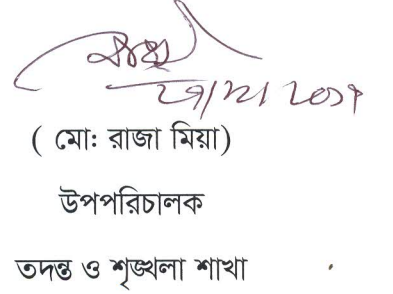 ( মো: রাজা মিয়া)
উপপরিচালক
তদন্ত ও শৃঙ্খলা শাখা